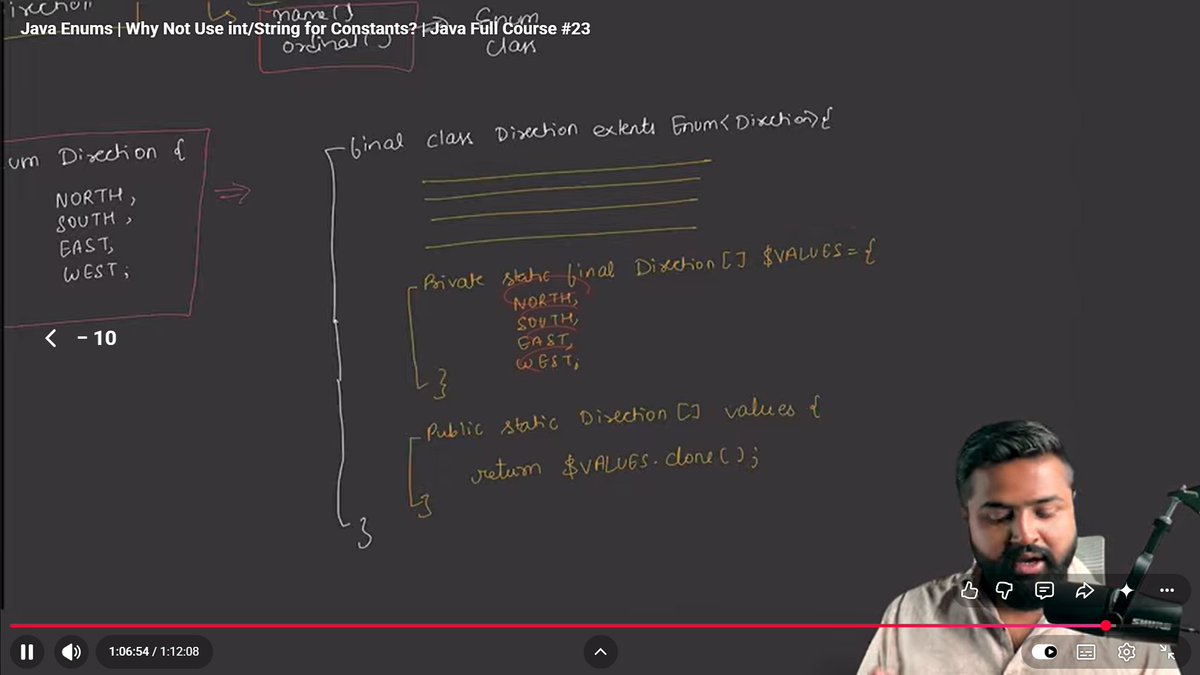 irection
name()
Enum
Java Enums | Why Not Use int/String for Constants? | Java Full Course #23
ordinal()
Class
um Direction {
NORTH,
SOUTH,
EAST,
WEST;
final class Direction extents Enum<Direction>{
Private static final Direction[] $VALUES = {
NORTH,
SOUTH,
EAST,
WEST;
}
Public static Direction[] values {
return $VALUES.clone();
}
}
- 10
SHURE
1:06:54 / 1:12:08